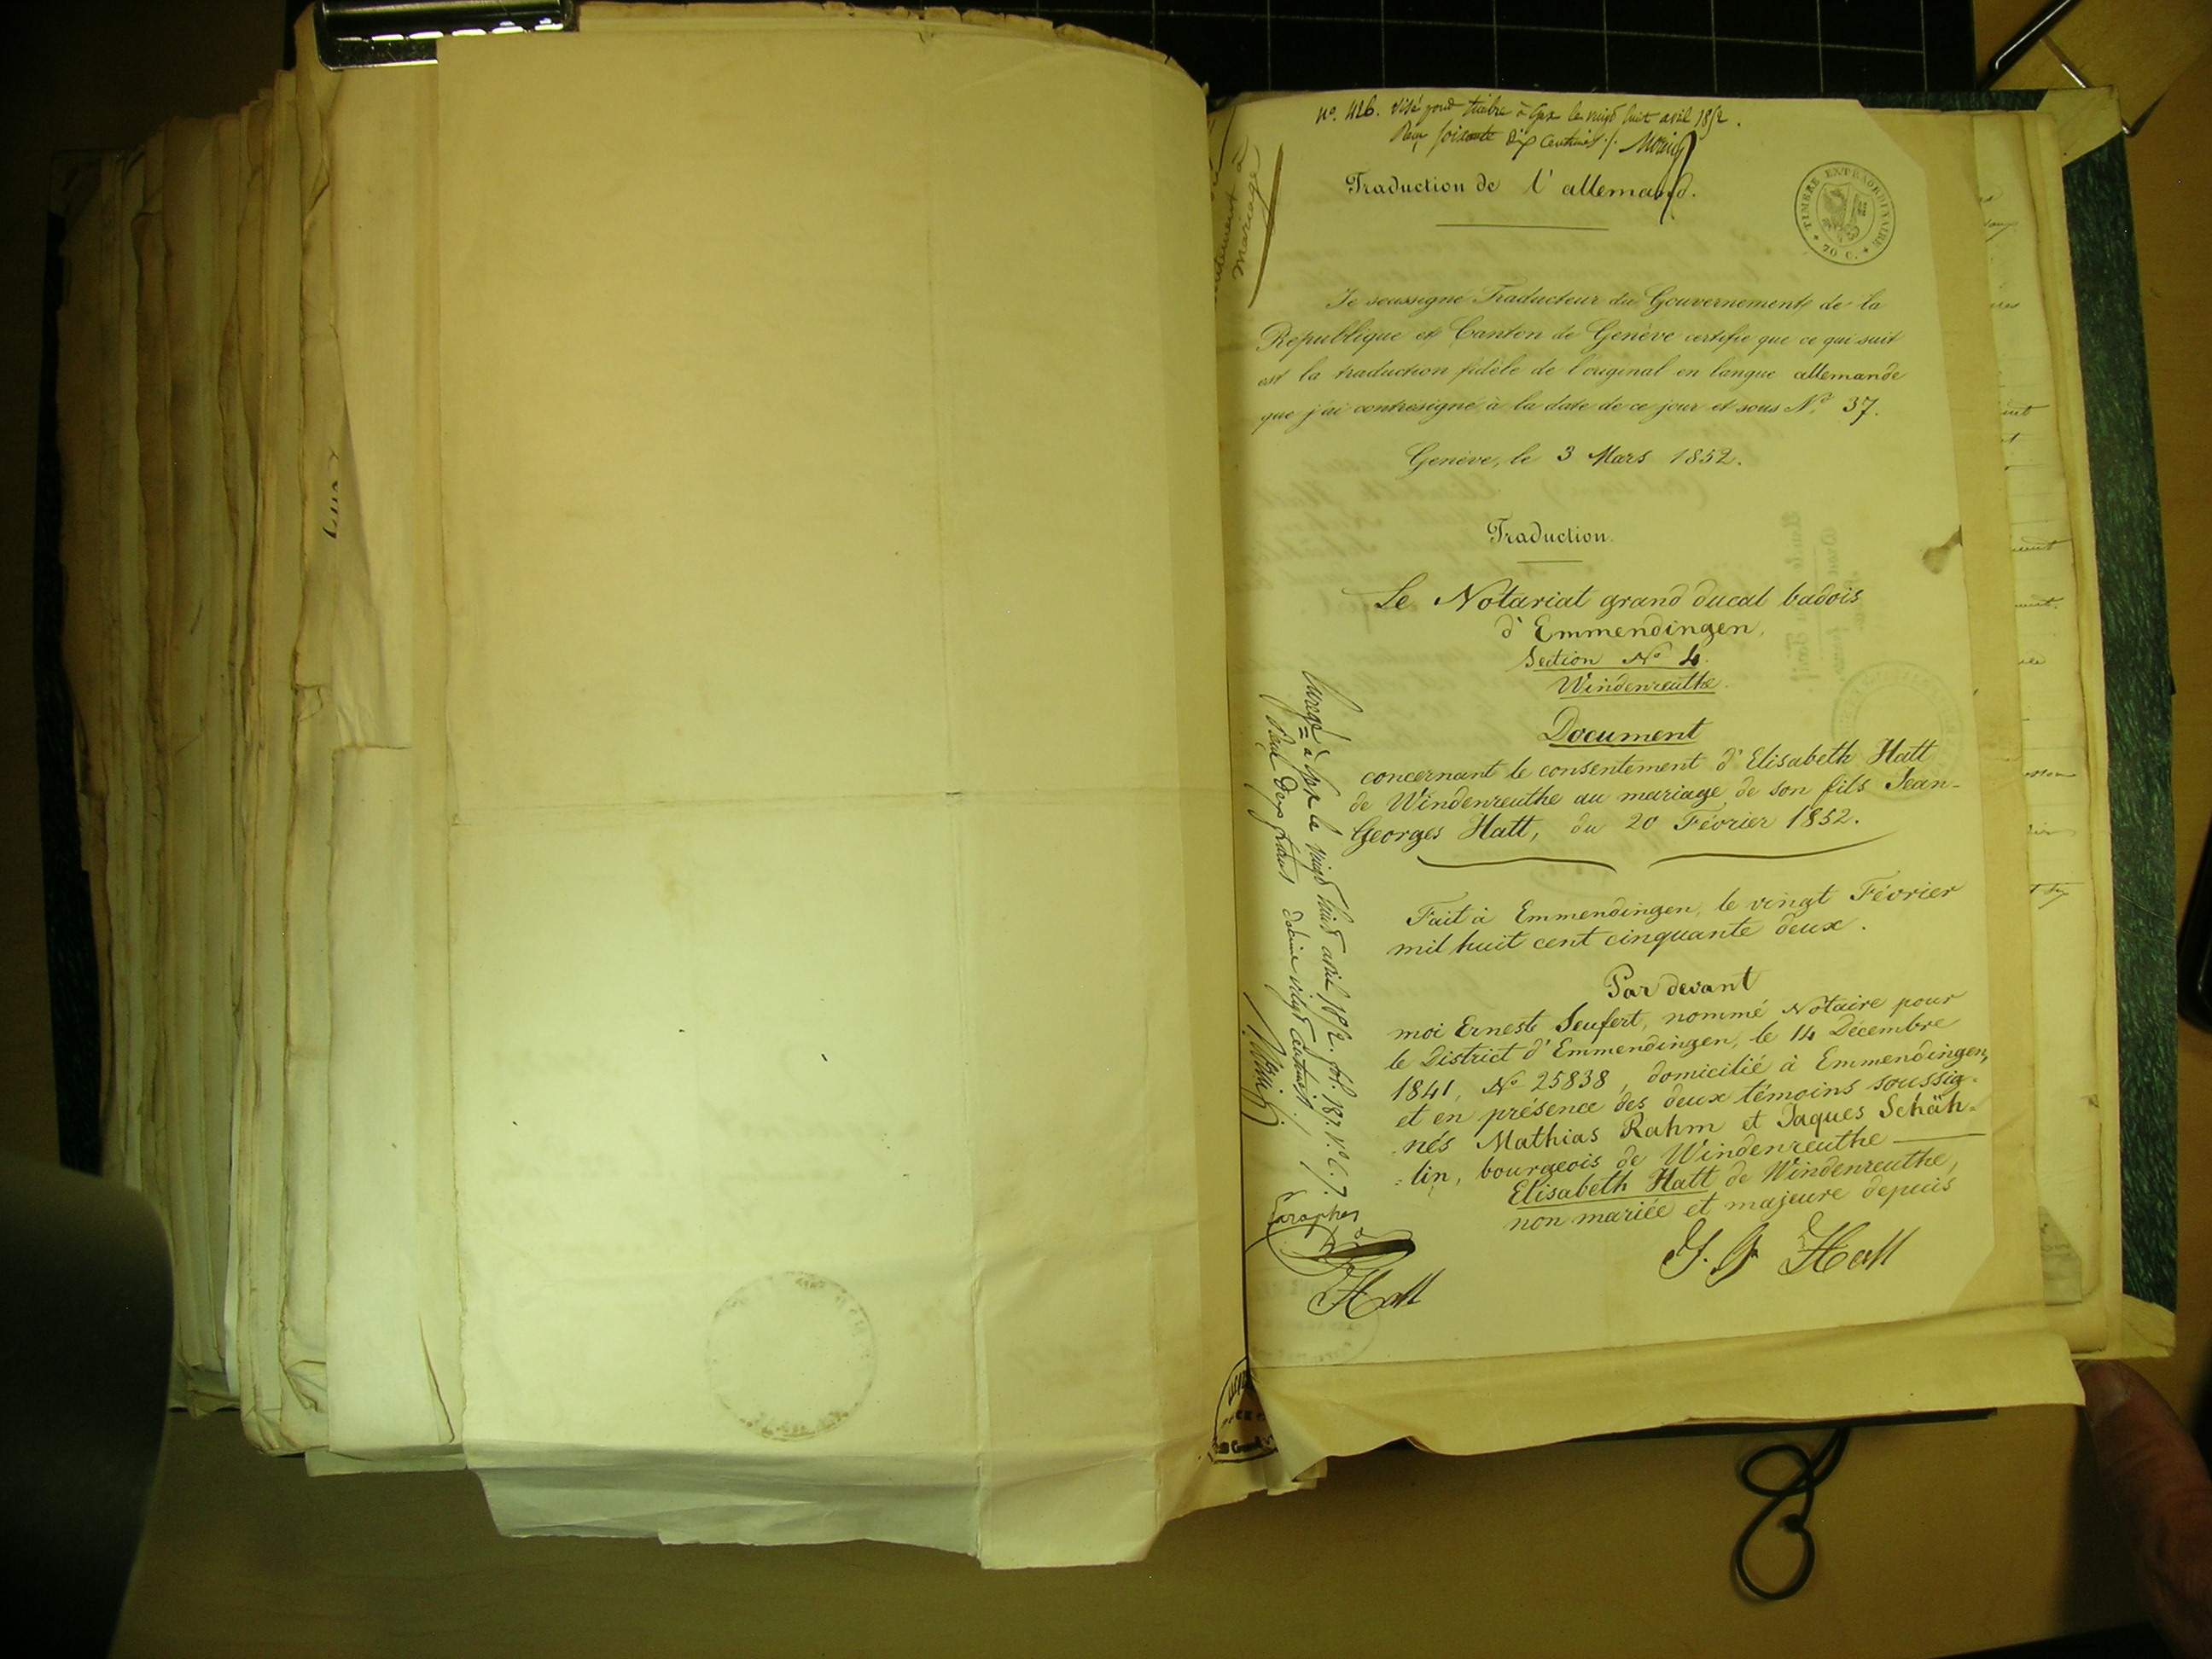 Nº. 426. Visé pour timbre à Gex le vingt huit avril 1852.
Reçu soixante dix centimes ./.
Traduction de l'allemand.
TIMBRE EXTRAORDINAIRE
70 C.
mariage
Je soussigné Traducteur du Gouvernement de la
République et Canton de Genève certifie que ce qui suit
est la traduction fidèle de l'original en langue allemande
que j'ai contresigné à la date de ce jour et sous Nº 37.
Genève, le 3 Mars 1852.
Traduction.
Le Notariat grand ducal badois
d'Emmendingen,
Section Nº 4.
Windenreuthe.
Document
concernant le consentement d'Elisabeth Hatt
de Windenreuthe au mariage de son fils Jean-
Georges Hatt, du 20 Février 1852.
Fait à Emmendingen, le vingt Février
mil huit cent cinquante deux.
Par devant
moi Erneste Seufert, nommé Notaire pour
le District d'Emmendingen, le 14 Décembre
1841, Nº 25838, domicilié à Emmendingen,
et en présence des deux témoins soussig-
nés Mathias Rahm et Jaques Schäh-
lin, bourgeois de Windenreuthe
Elisabeth Hatt de Windenreuthe,
non mariée et majeure depuis
J. G Hatt
à Gex le vingt huit avril 1852. fol. 187. Vº C. 7.
deux francs vingt centimes
Hatt